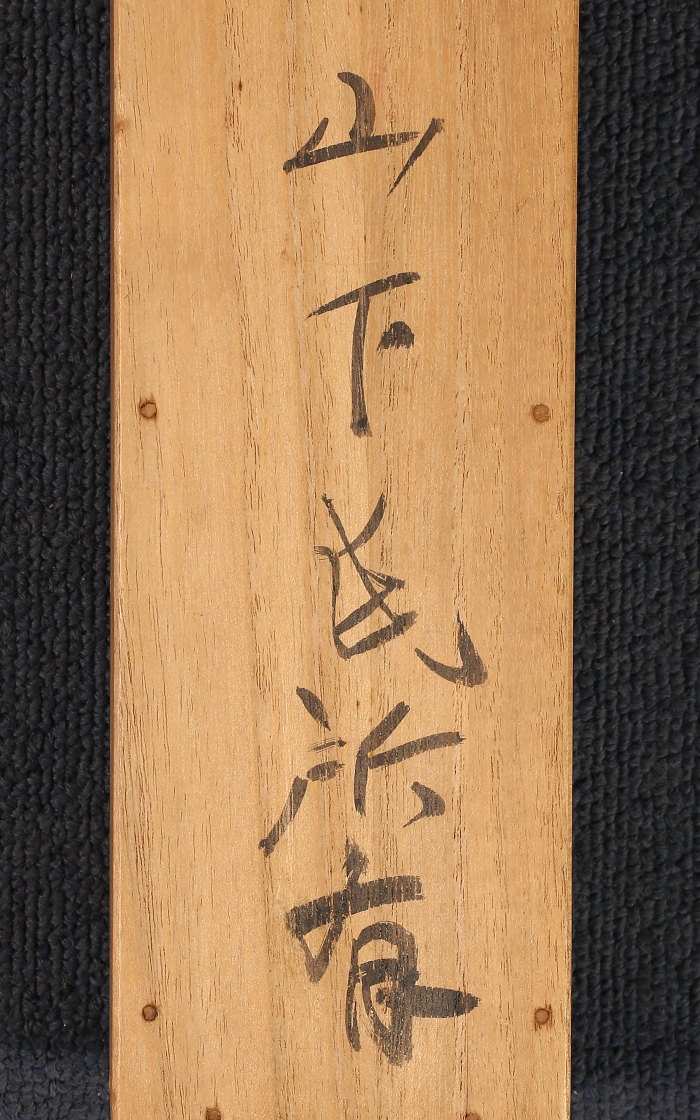 山下氏所有